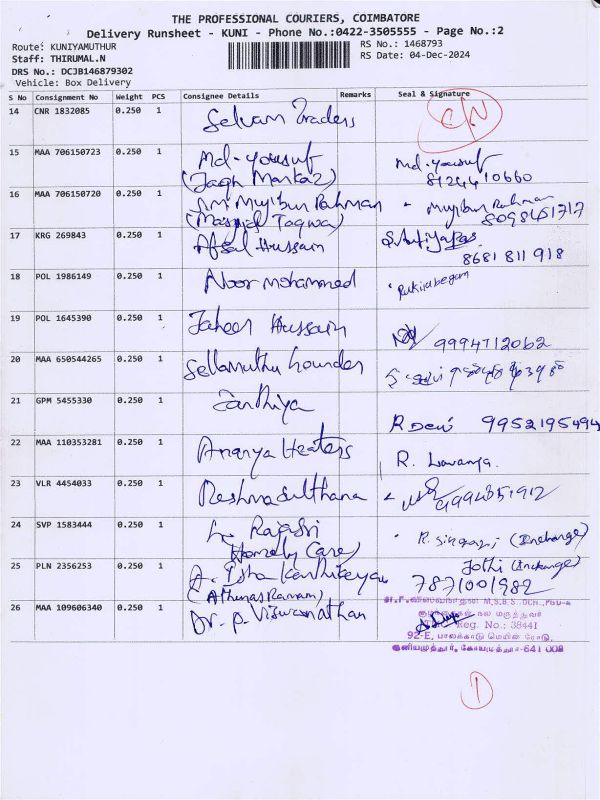 THE PROFESSIONAL COURIERS, COIMBATORE
Delivery Runsheet - KUNI - Phone No.:0422-3505555 - Page No.:2
Route: KUNIYAMUTHUR RS No.: 1468793
Staff: THIRUMAL.N RS Date: 04-Dec-2024
DRS No.: DCJB146879302
Vehicle: Box Delivery
S No Consignment No Weight PCS Consignee Details Remarks Seal & Signature
14 CNR 1832085 0.250 1 Selvam Traders C/N
15 MAA 706150723 0.250 1 Md-yousuf Md-yousuf
(Jaqh Markaz) 8124410660
16 MAA 706150720 0.250 1 Mujibur Rahman Mujibur Rahman
(Masjid Taqwa) 8098451717
17 KRG 269843 0.250 1 Afsal Hussain
8681 811 918
18 POL 1986149 0.250 1 Noor mohammed Rukiabegam
19 POL 1645390 0.250 1 Jaheer Hussain 9994712062
20 MAA 650544265 0.250 1 Sellamuthu Gounder
21 GPM 5455330 0.250 1 Santhiya R Devi 9952195494
22 MAA 110353281 0.250 1 Ananya Heaters R. Lavanya.
23 VLR 4454033 0.250 1 Reshmasulthana
24 SVP 1583444 0.250 1 Rajasri (Incharge)
(Homely Care) Jothi (Incharge)
25 PLN 2356253 0.250 1 Isha Karthikeyan 7871001982
26 MAA 109606340 0.250 1 Dr. P. Viswanathan
Reg. No.: 38441
92-E, பாலக்காடு மெயின் ரோடு,
குனியமுத்தூர், கோயமுத்தூர்-641 008
1